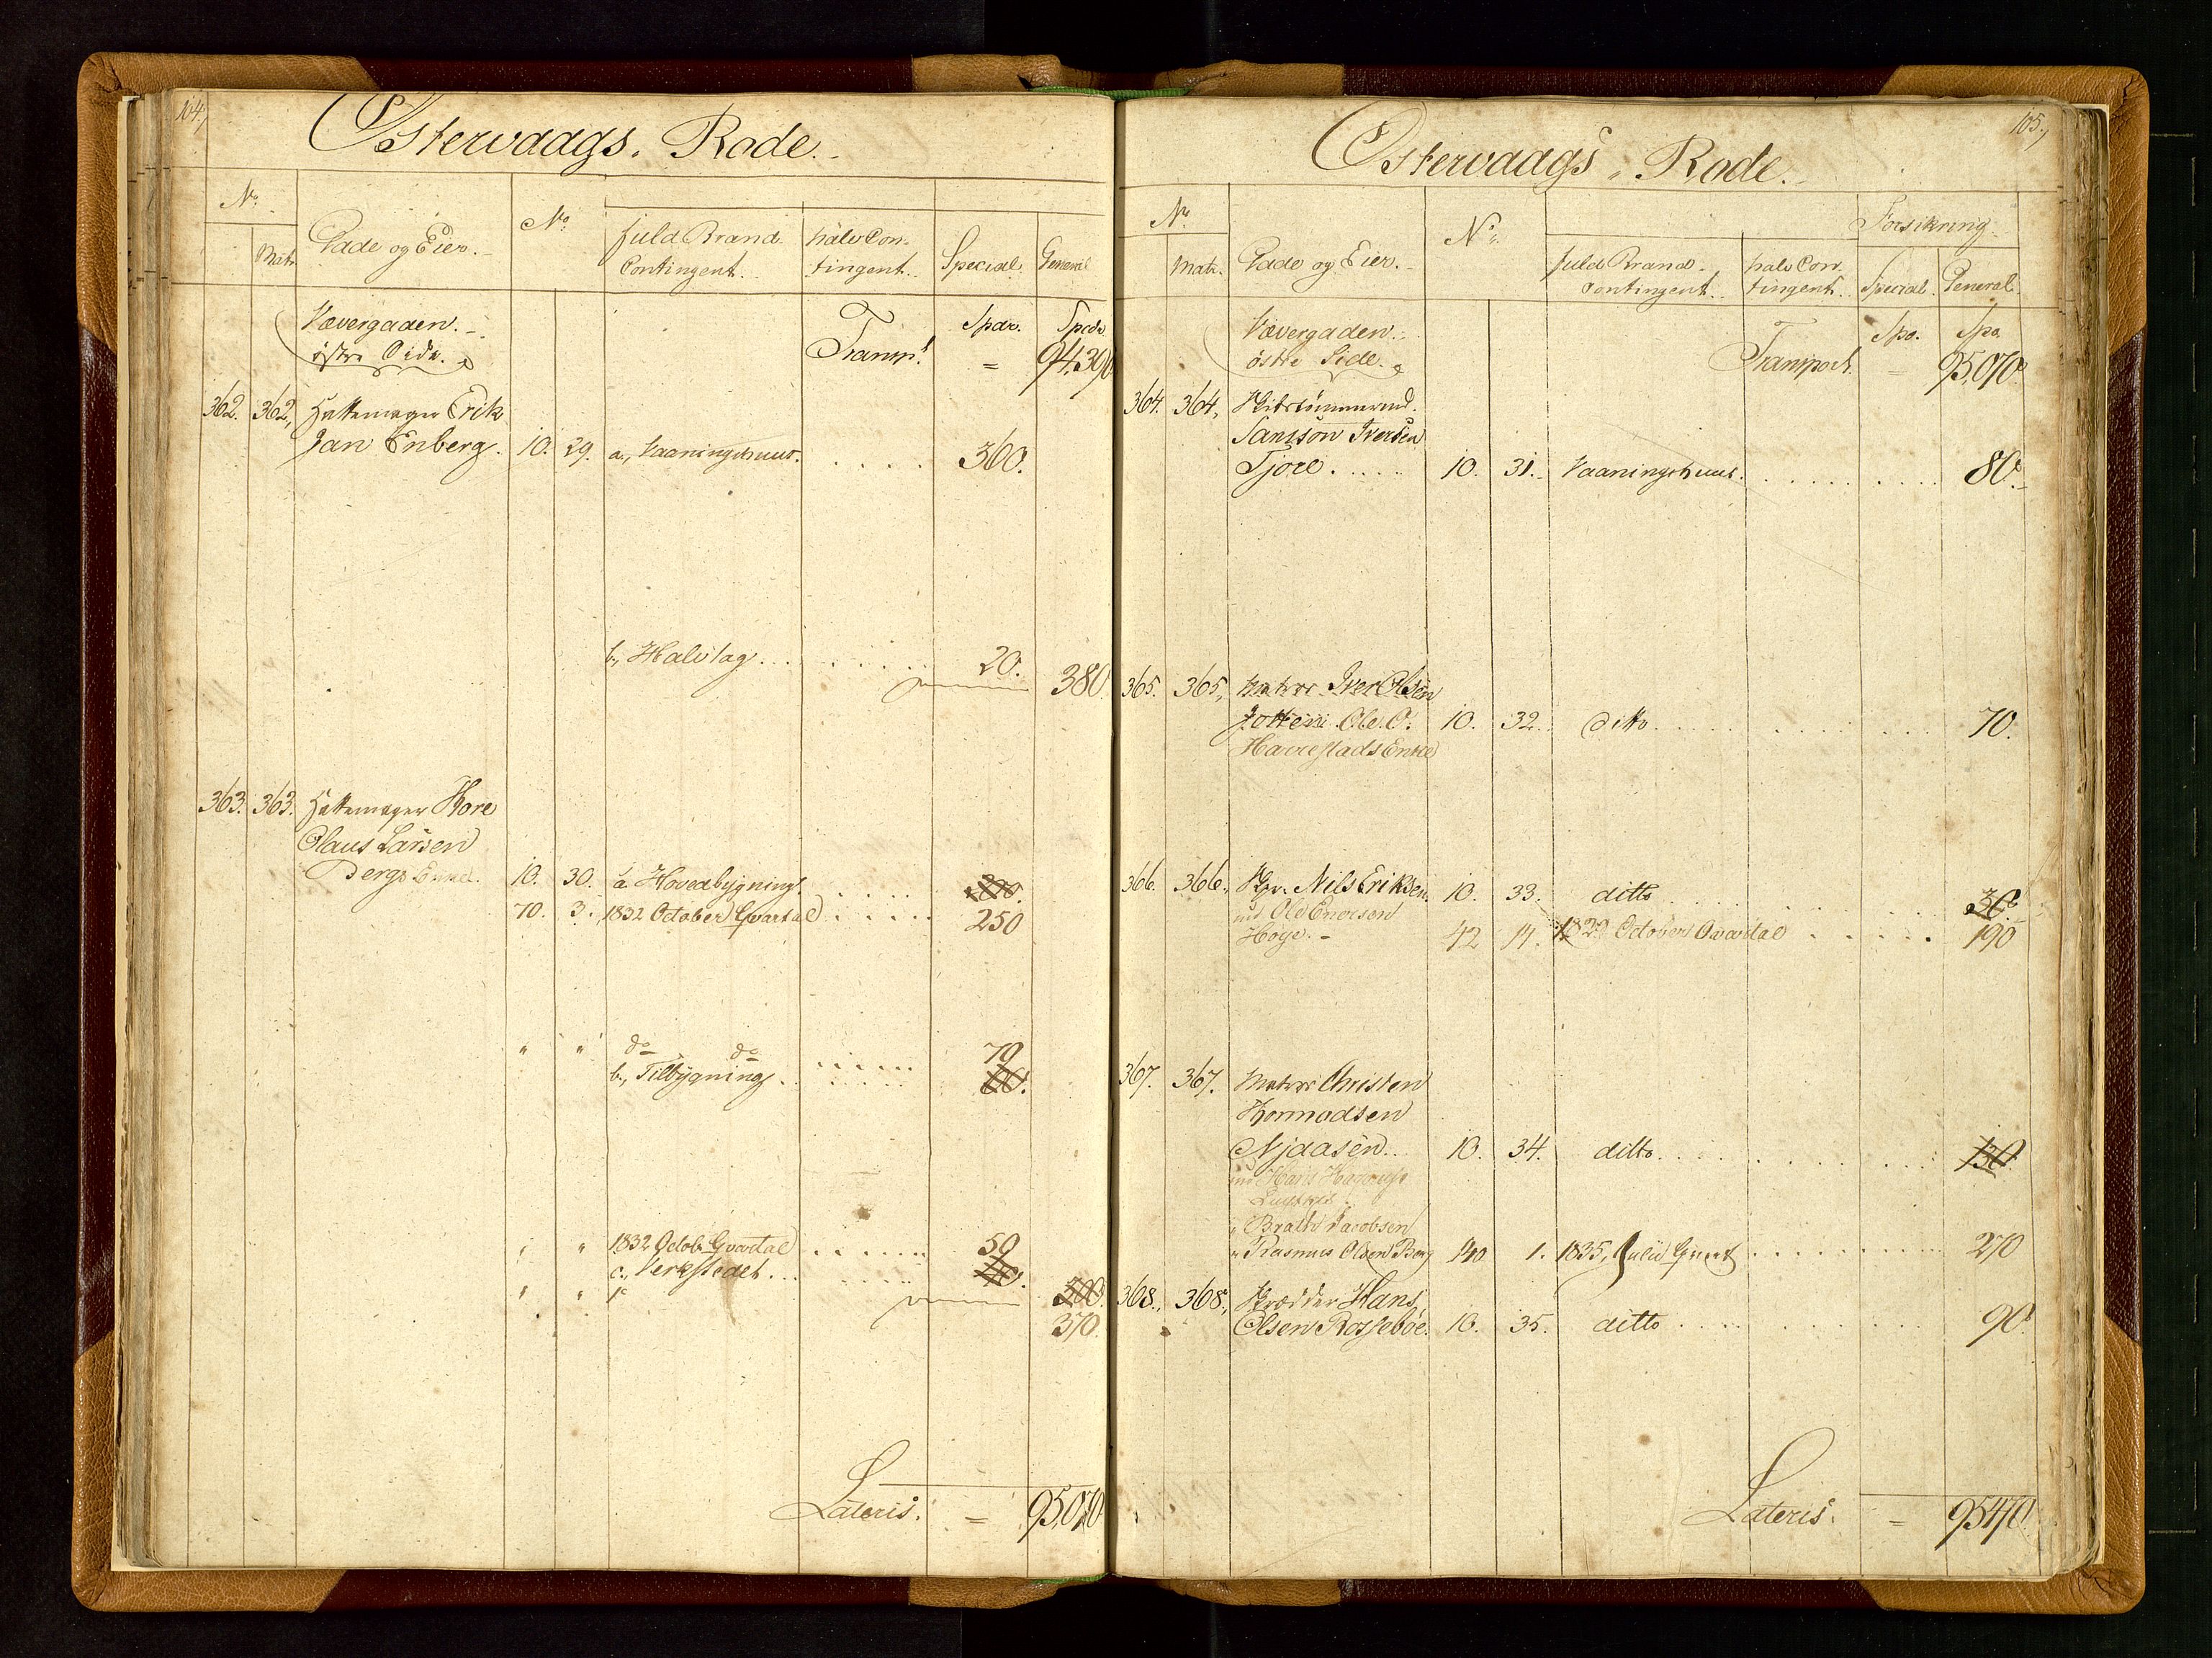 104,
Østervaags. Rode.
No.
Matr.
Gade og Eier.
No.
fuld Brand
Contingent.
halv Con-
tingent.
Special.
General
Vævergaden.
østre Side.
Transpt.
Spdr.
=
Spdr
94,390
362. 362, Hattemager Erik
Jan Enberg. 10. 29. a., Vaaningshuus. 360.
b., Halvtag. 20.
380.
363. 363. Hattemager Kore
Claus Larsen
Bergs Enke. 10. 30. a. Hovedbygning. 200.
70. 3. 1832 October Qvartal 250
" " do do 70
b., Tilbygning. 60.
" " 1832 Octob. Qvartal 50
c., Verkstedet. 40.
" " 300.
370.
Lateris. = 95,070
105,
Østervaags. Rode.
No.
Matr.
Gade og Eier.
No.
fuld Brand.
Contingent.
halv Con-
tingent.
Forsikring.
Special.
General.
Vævergaden.
østre Side.
Transport.
Spd.
=
Spd.
95,070.
364. 364, Skibstømmermd.
Samson Iversen
Tjore. 10. 31. Vaaningshuus. 80.
365. 365, Matros Iver Olsen
Jottem. Ole. O. 10. 32. ditto. 70.
Haverstads Enke
366. 366. Skpr. Nils Eriksen. 10. 33. ditto 30.
nu Ole Enersen
Hoye. 42 14. 1829 Octobers Qvartal 190
367. 367. Matros Christen
Kornmodsen
Njaasen. 10. 34. ditto. 130.
nu Hans
" Bratte Jacobsen
" Rasmus Olsen Berg 140 1. 1835, Julii Qvart 270
368. 368. Skrædder Hans
Olsen Rossebøe. 10. 35. ditto 90.
Lateris. = 95470.